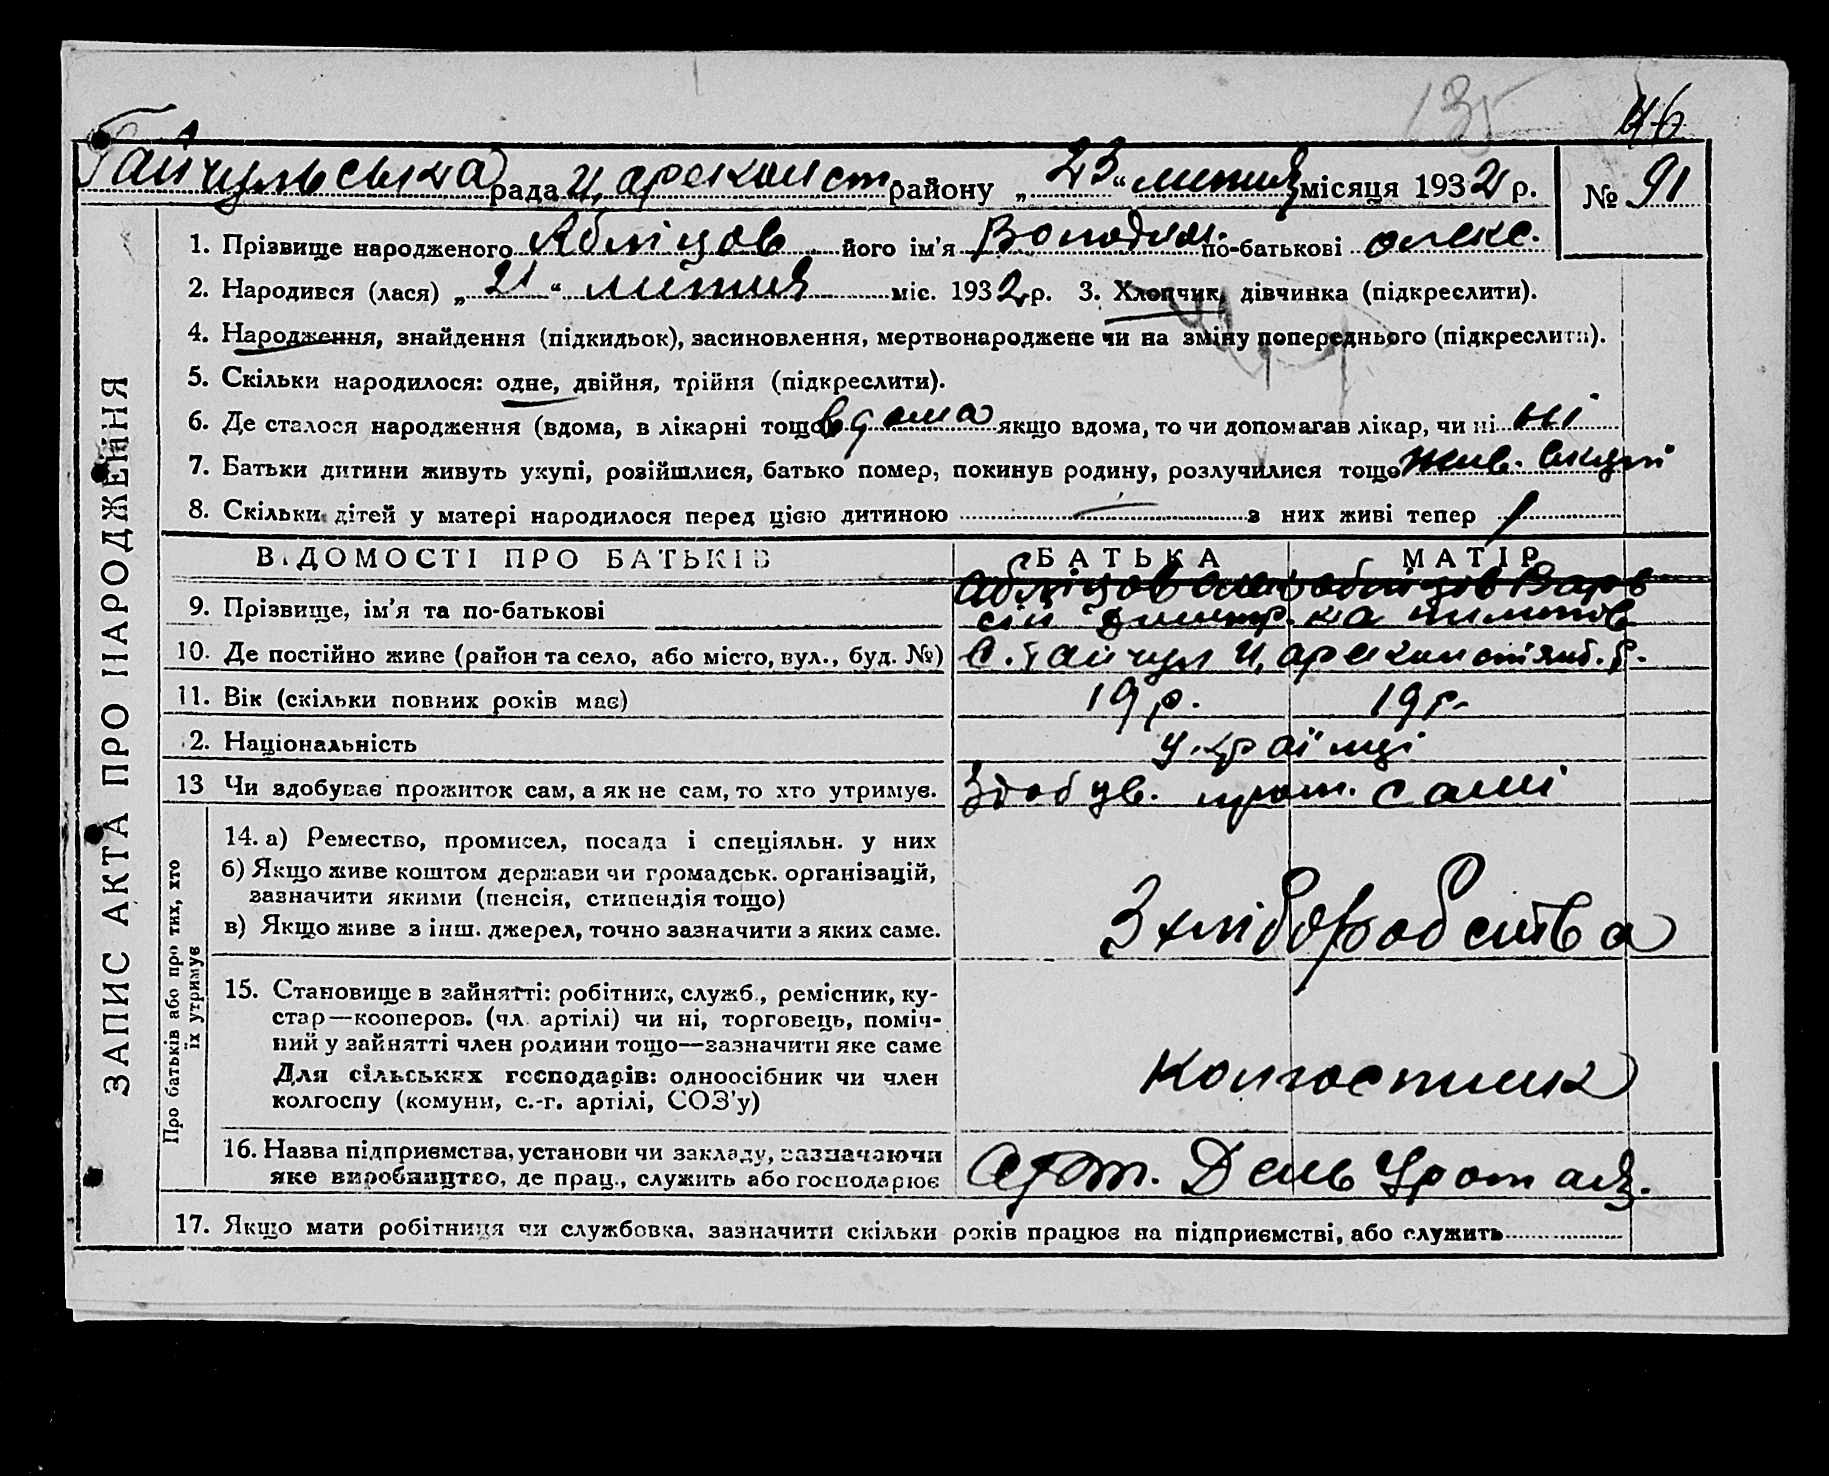 135
46
Гайчульська рада Царекокст району „23“ липня місяця 1932 р. № 91
1. Прізвище народженого Абліцов його ім'я Володим. по-батькові Олекс.
2. Народився (лася) „21“ липня міс. 1932 р. 3. Хлопчик, дівчинка (підкреслити).
4. Народження, знайдення (підкидьок), засиновлення, мертвонароджене чи на зміну попереднього (підкреслити).
5. Скільки народилося: одне, двійня, трійня (підкреслити).
6. Де сталося народження (вдома, в лікарні тощо) вдома якщо вдома, то чи допомагав лікар, чи ні ні
7. Батьки дитини живуть укупі, розійшлися, батько помер, покинув родину, розлучилися тощо жив. вкупі
8. Скільки дітей у матері народилося перед цією дитиною — з них живі тепер 1
ВІДОМОСТІ ПРО БАТЬКІВ БАТЬКА МАТІР
9. Прізвище, ім'я та по-батькові Абліцов Олексій Дмитр. Абліцова Варвка Пилипов.
10. Де постійно живе (район та село, або місто, вул., буд. №) С. Гайчул
11. Вік (скільки повних років має) 19 р. 19 р.
12. Національність українці
13 Чи здобуває прожиток сам, а як не сам, то хто утримує. Здобув. прож. самі
ЗАПИС АКТА ПРО НАРОДЖЕННЯ
Про батьків або про тих, хто їх утримує
14. а) Ремество, промисел, посада і спеціяльн. у них
б) Якщо живе коштом держави чи громадськ. організацій,
зазначити якими (пенсія, стипендія тощо)
в) Якщо живе з інш. джерел, точно зазначити з яких саме.
З хліборобства
15. Становище в зайнятті: робітник, служб., ремісник, ку-
стар—кооперов. (чл. артілі) чи ні, торговець, поміч-
ний у зайнятті член родини тощо—зазначити яке саме
Для сільських господарів: одноосібник чи член
колгоспу (комуни, с.-г. артілі, СОЗ'у)
колгоспник
16. Назва підприємства, установи чи закладу, зазначаючи
яке виробництво, де прац., служить або господарює
Арт. День Урожаю.
17. Якщо мати робітниця чи службовка, зазначити скільки років працює на підприємстві, або служить